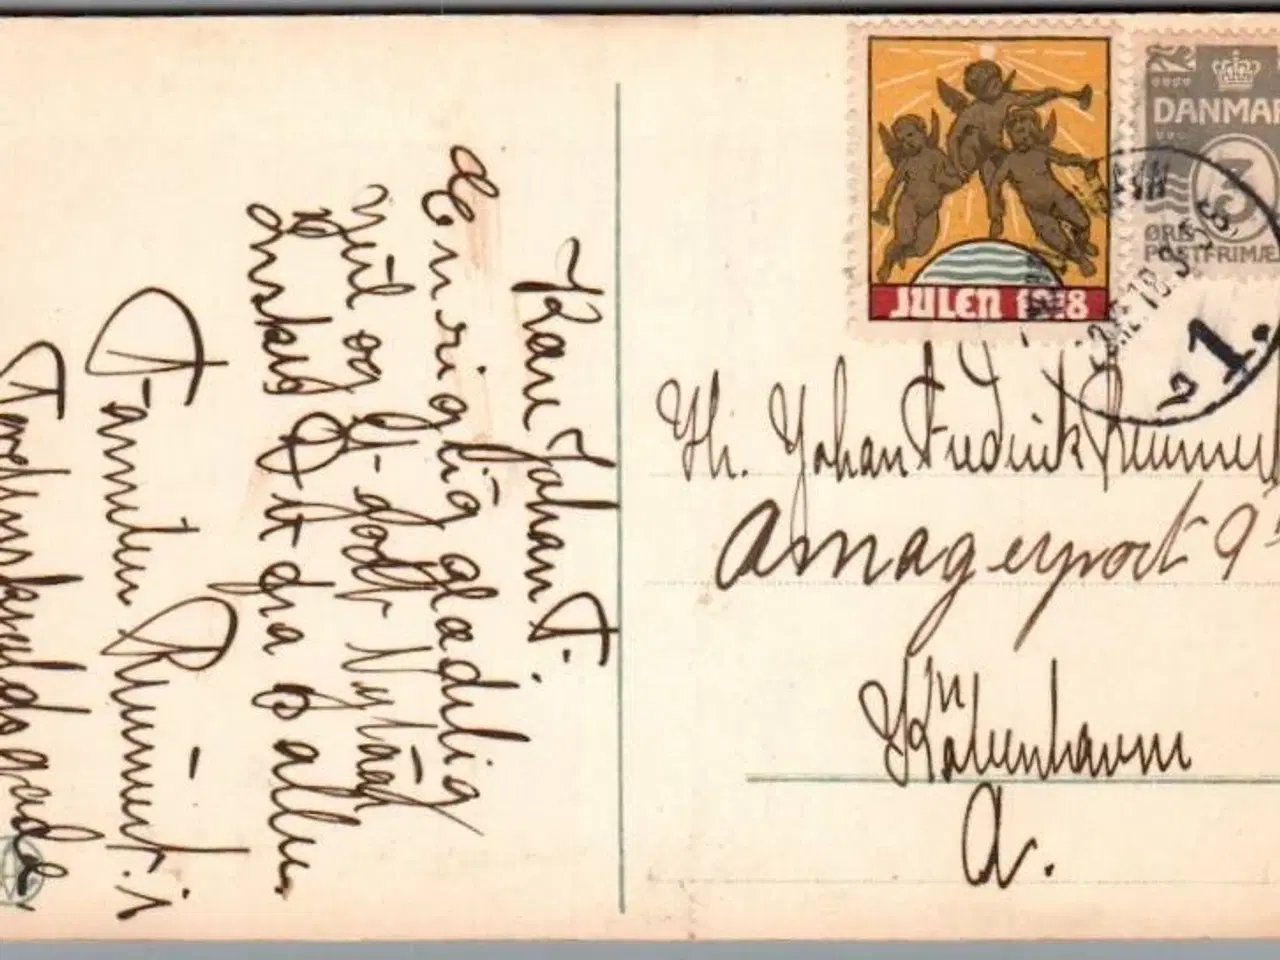 Kær Johan F.
en rigtig glædelig
Jul og et godt Nytaar
ønskes I fra os alle.
Familien Rummet. i
JULEN 1918
DANMA
3
ØRE
POSTFRIMÆ
1.
Hr. Johan Fredrick
Amagerport 9
Köbenhavn
A.